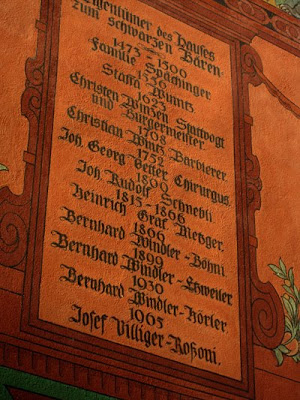 Eigentümer des Hauses
zum schwarzen Bären
1473-1506
Familie Spörringer
1536
Staffa Wirntz
1623
Christen Winsen Stattvogt
und Bürgermeister.
1708
Christian Wintz Barbierer.
1752
Joh. Georg Vetter Chirurgus.
1800
Joh. Rudolf Schnebli
1815-1866
Heinrich Graf Metzger.
1866
Bernhard Windler-Böhni.
1899
Bernhard Windler-Etzweiler
1930
Bernhard Windler-Körler.
1965
Josef Villiger-Roßoni.